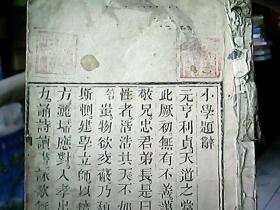 小學題辭
元亨利貞天道之常
此厥初無有不善藹
敬兄忠君弟長是曰
性者浩浩其天不加
蚩蚩物欲交蔽乃頹
斯惻建學立師以培
方灑掃應對入孝出
九誦詩讀書詠歌